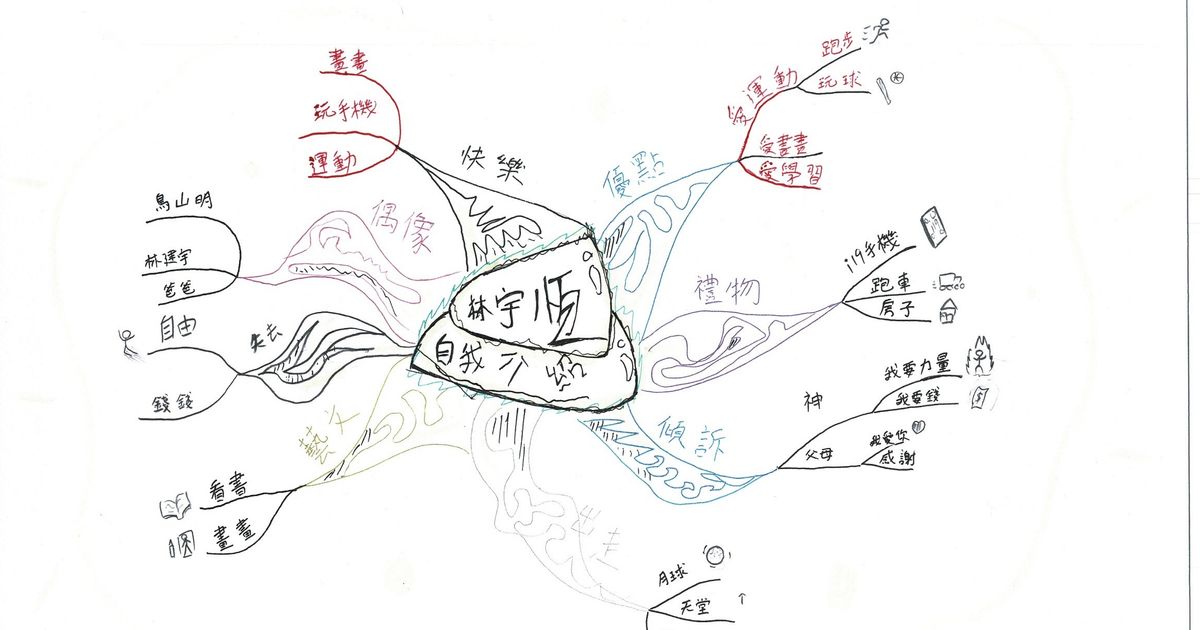 林宇順
自我介紹
快樂
畫畫
玩手機
運動
優點
愛運動
跑步
玩球
愛畫畫
愛學習
禮物
i19手機
跑車
房子
傾訴
神
我要力量
我要錢
$
父母
我愛你
感謝
出走
月球
天堂
藝文
看書
畫畫
失去
自由
錢錢
偶像
鳥山明
爸爸